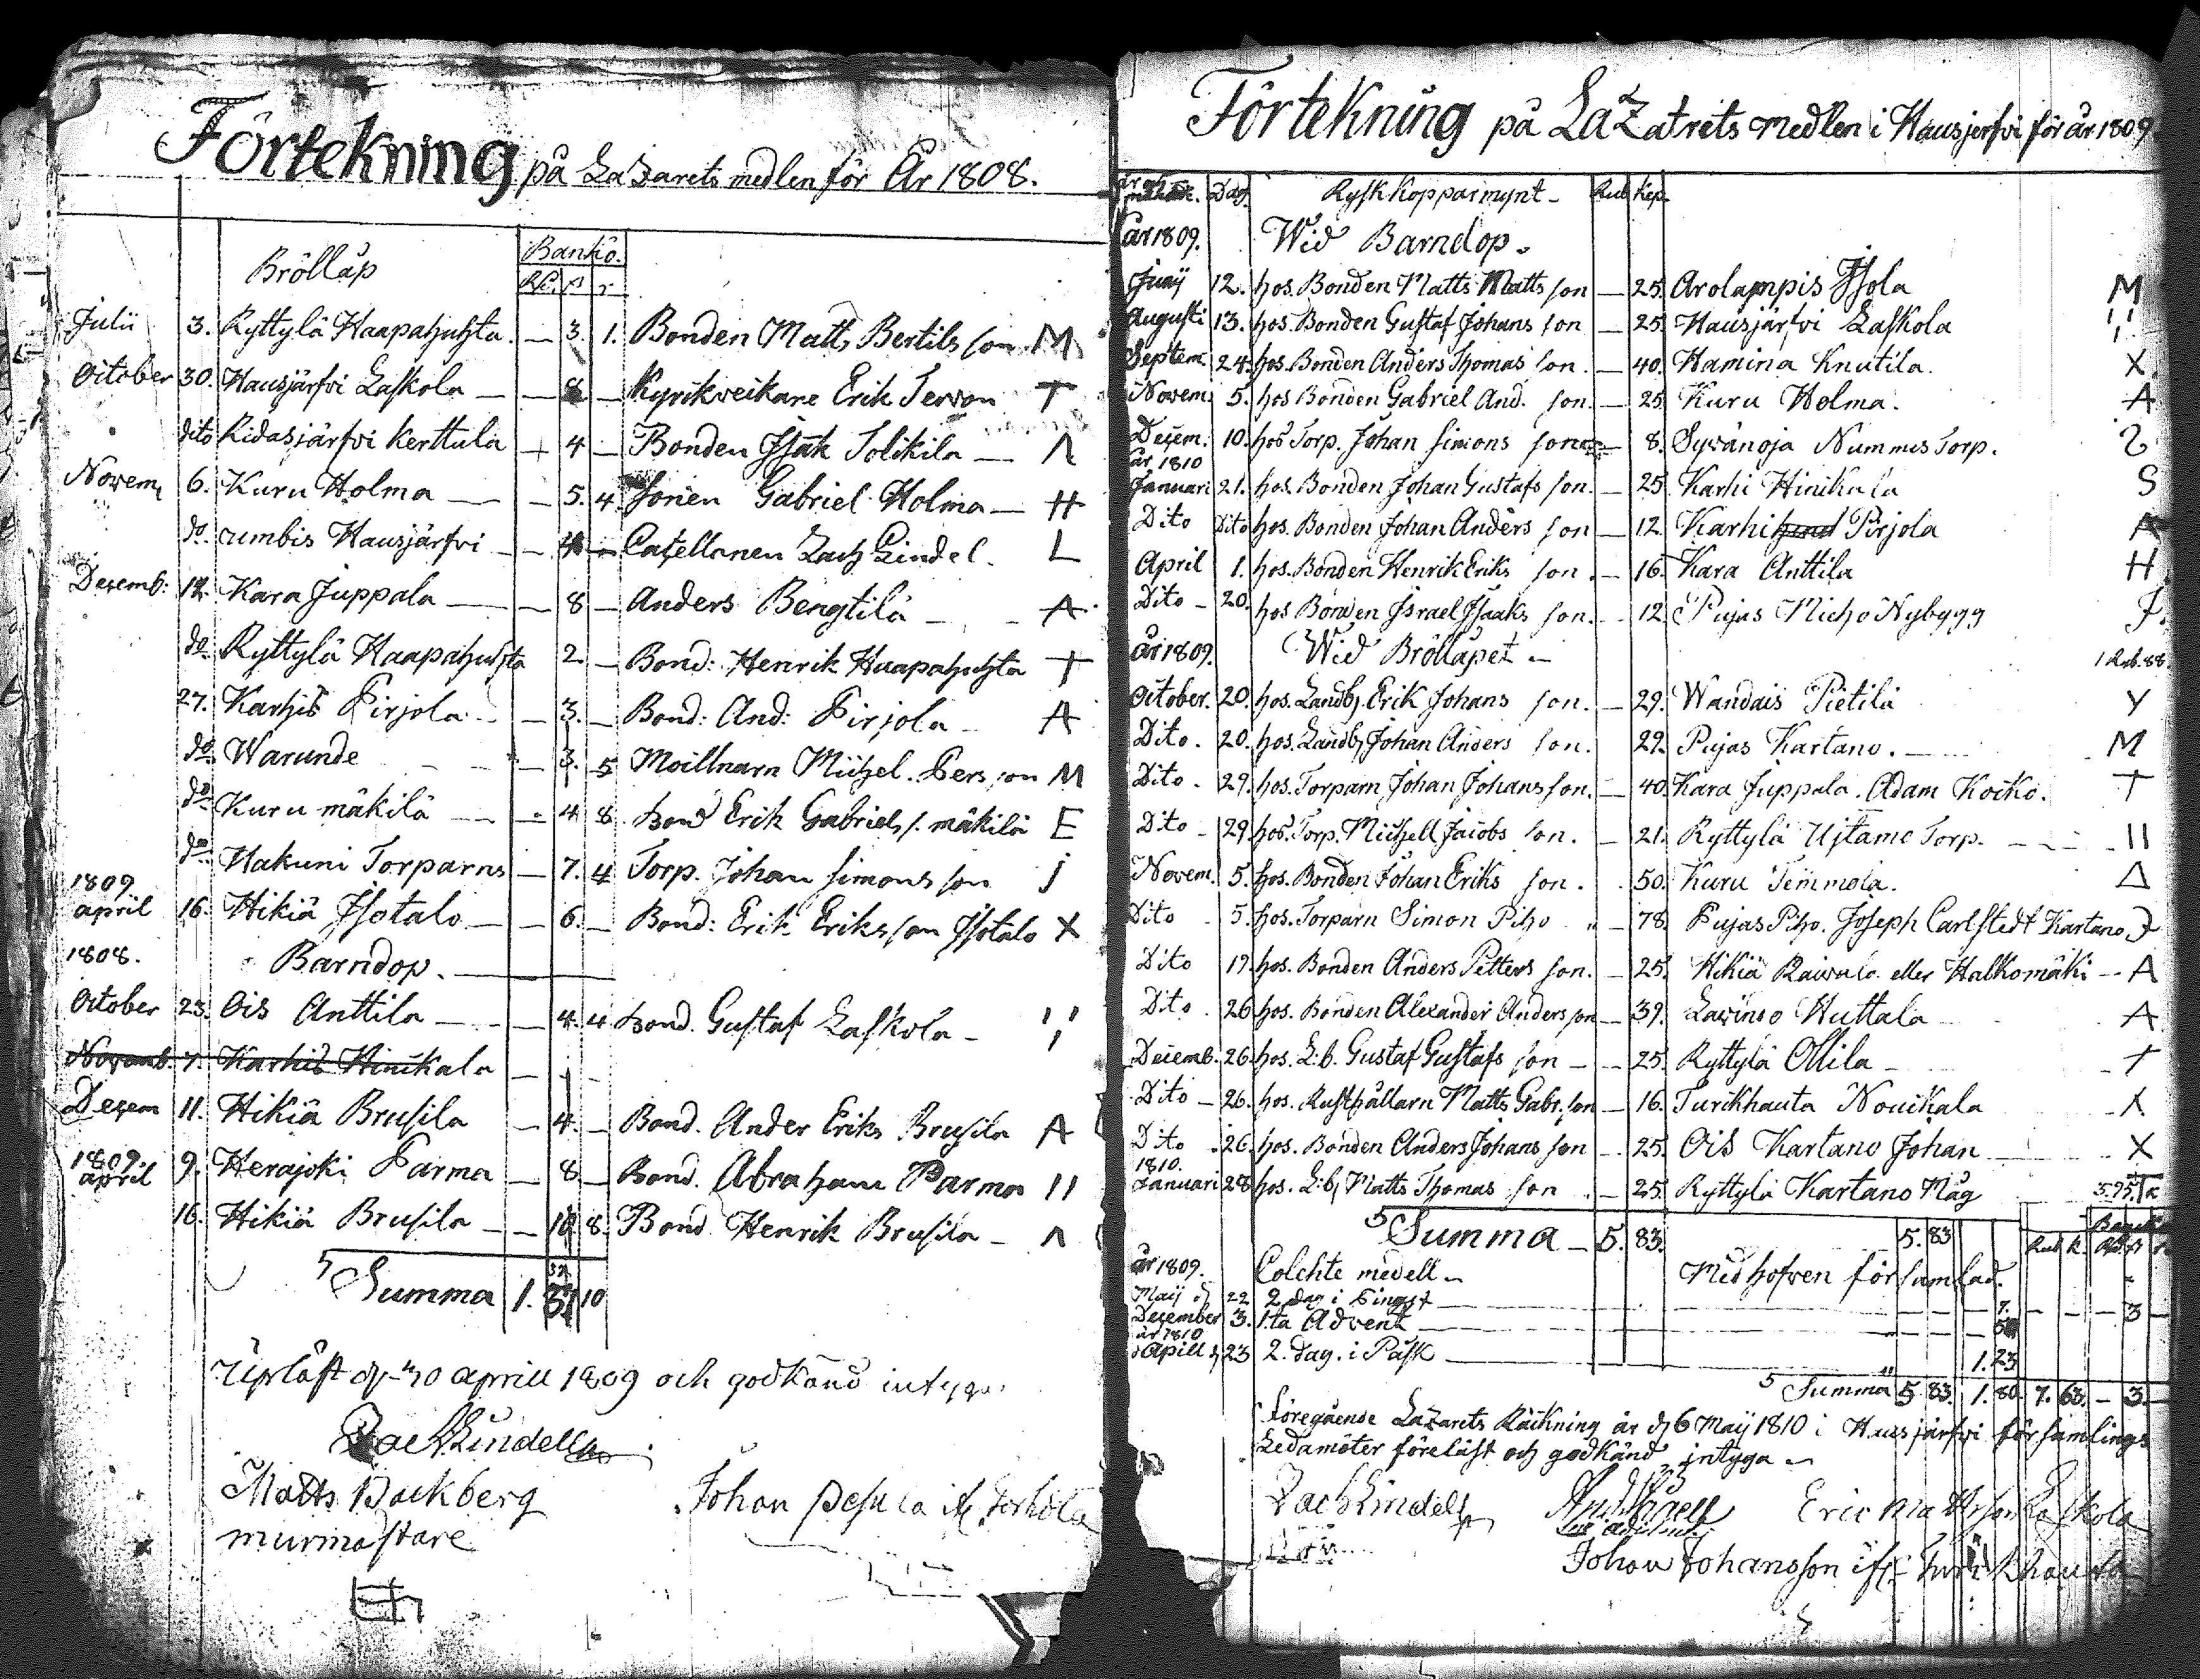 Förtekning på Lazarets medlen för År 1808.
Bröllåp Banko.
Rd. ß r
Julii 3. Ryttylä Haapahuhta. — 3. 1. Bonden Matts Bertils son M
October 30. Hausjärfvi Laskola — — 8 — Kyrikveikare Erik Tervon T
dito Ridasjärfvi Kerttula — 4 — Bonden Isak Solikila — Λ
Novem. 6. Kuru Holma — — 5. 4. Gabriel Holma — H
do. Hausjärfvi — — 4 — Zach Lindel. L
Decemb: 12. Kara Juppala — — 8 — Anders Bengtilä — A
do. Ryttylä Haapahuhta 2. — Bond: Henrik Haapahuhta T
27. Karhis Pirjola — — 3. — Bond: And: Pirjola — A
do Warunde — 3. 5 Michel Pers son M
do Kuru mäkilä — — 4 8 Bond Erik Gabriels s. mäkilä E
do Hakuni Torparns — 7. 4 Torp. Johan Simons son j
1809
april 16. Hikiä Isotalo — — 6. — Bond: Erik Eriks son Isotalo X
1808.
Barndop.
October 23. Ois Anttila — — 4. 4 Bond. Gustaf Laskola —
Novemb. 7. Karhis Hinikala
Decem 11. Hikiä Brusila — 4. — Bond. Ander Eriks Brusila A
1809.
april 9. Herajoki Parma — 8 — Bond. Abraham Parma II
16. Hikiä Brusila — — 10 8. Bond Henrik Brusila — Λ
Summa 1. 10
Upläst d. 30 aprill 1809 och godkänd intyga.
Zach Lindell
Matts Backberg
murmästare
Johan
Förtekning på Lazatrets medlen i Hausjerfvi för år 1809.
Dag. Rysk Kopparmynt — Rub Kop.
år 1809. Wid Barndop.
Junij 12. hos. Bonden Matts Matts son — 25. Arolampis Isola M
Augusti 13. hos. Bonden Gustaf Johans son — 25. Hausjärfvi Laskola
Septem. 24. hos. Bonden Anders Thomas son. — 40. Hamina Knutila. X
Novem. 5. hos Bonden Gabriel And. son. — 25. Kuru Holma. A
Decem. 10. hos Torp. Johan Simons son — 8. Syvänoja Nummis Torp. 2
år 1810
Januari 21. hos. Bonden Johan Gustafs son. — 25. Karhi Hinikala S
Dito Dito hos. Bonden Johan Anders son — 12. Karhi Pirjola A
April 1. hos. Bonden Henrik Eriks son. — 16. Kara Anttila H.
Dito — 20. hos Bonden Israel Isaaks son. — 12. Pujas Nybygg J.
år 1809. Wid Bröllåpet — 1 Rub. 88.
October. 20. hos. Landb. Erik Johans son. — 29. Wandais Pietilä Y
Dito. 20. hos. Landb. Johan Anders son. 29. Pujas Kartano. — M
Dito. 29. hos. Torparn Johan Johans son. — 40. Kara Juppala. Adam Koiko. T
Dito — 29. hos. Torp. Michell Jacobs son. — 21. Ryttylä Torp. — II
Novem. 5. hos. Bonden Johan Eriks son. 50. Kuru Temmola. Δ
Dito — 5. hos. Torparn Simon Piho — 78. Pujas Piho. Joseph Carlstedt Kartano
Dito 19. hos. Bonden Anders Petters son. — 25. Hikiä Raivala eller Halkomäki — A
Dito. 26. hos. Bonden Alexander Anders son — 39. Huttala A
Decemb. 26. hos. L:b. Gustaf Gustafs son — 25. Ryttylä Ollila — T
Dito — 26. hos. Rusthållarn Matts Gabr. son — 16. Turikhauta Nouikala Λ
Dito 26. hos. Bonden Anders Johans son — 25. Ois Kartano Johan X
1810.
Januari 28. hos. L:b. Matts Thomas son — 25. Ryttylä Kartano Måg 3.95
Summa — 5. 83. 5. 83
Rub K.
år 1809. Colchte medell — Med hofven församlad.
Maij d. 22 2. dag i Pingst — 7. — 3
December 3. 1:ta Advent — 50
år 1810
Aprill d. 23 2. dag. i Påsk — 1.23
Summa 5. 83. 1. 80. 7. 63. — 3.
Föregående Lazarets Räckning är d. 6 Maij 1810 i Hausjärfvi församlings
Ledamöter föreläst och godkänd, intyga —
Zach Lindell
Eric Laskola
Johan Johansson